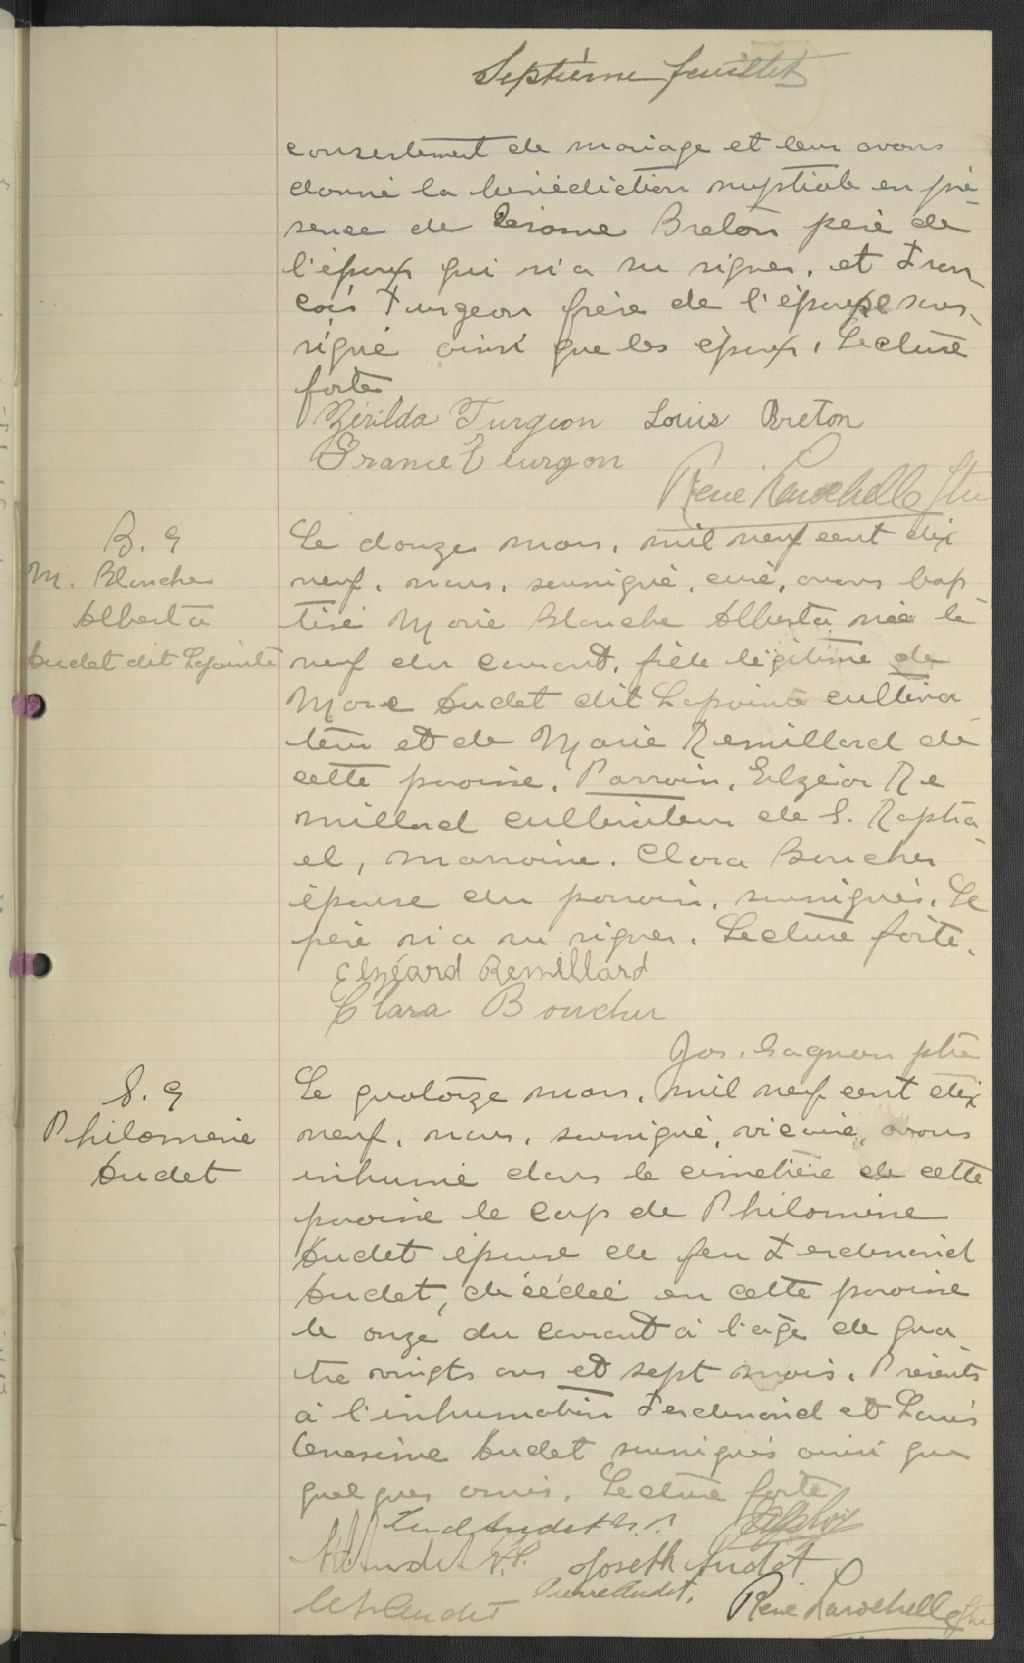 Septième feuillet
consentement de mariage et leur avons
donné la bénédiction nuptiale en pré-
sence de Jérôme Breton père de
l'époux qui n'a su signer, et Fran-
çois Turgeon frère de l'épouse sous-
signé ainsi que les époux. Lecture
faite
Zérilda Turgeon Louis Breton
Turgeon
René Larochelle Ptre
B. 9
M. Blanche
Alberta
Audet dit Lapointe
Le douze mars, mil neuf cent dix
neuf, nous, soussigné, curé, avons bap-
tisé Marie Blanche Alberta née le
neuf du courant, fille légitime de
Marc Audet dit Lapointe cultiva
teur et de Marie Remillard de
cette paroisse. Parrain, Elzéar Re
millard cultivateur de S. Rapha-
el, marraine, Clara Boucher
épouse du parrain, soussignés. Le
père n'a su signer. Lecture faite.
Elzéard Remillard
Clara Boucher
Jos. Gagnon ptre
S. 9
Philomène
Audet
Le quatorze mars, mil neuf cent dix
neuf, nous, soussigné, vicaire, avons
inhumé dans le cimetière de cette
paroisse le corps de Philomène
Audet épouse de feu Ferdinand
Audet, décédée en cette paroisse
le onze du courant à l'âge de qua
tre vingts ans et sept mois. Présents
à l'inhumation Ferdinand et Louis
Audet soussignés ainsi que
quelques amis. Lecture faite
Audet
Audet Joseph Audet
Pierre Audet,
Audet René Larochelle Ptre